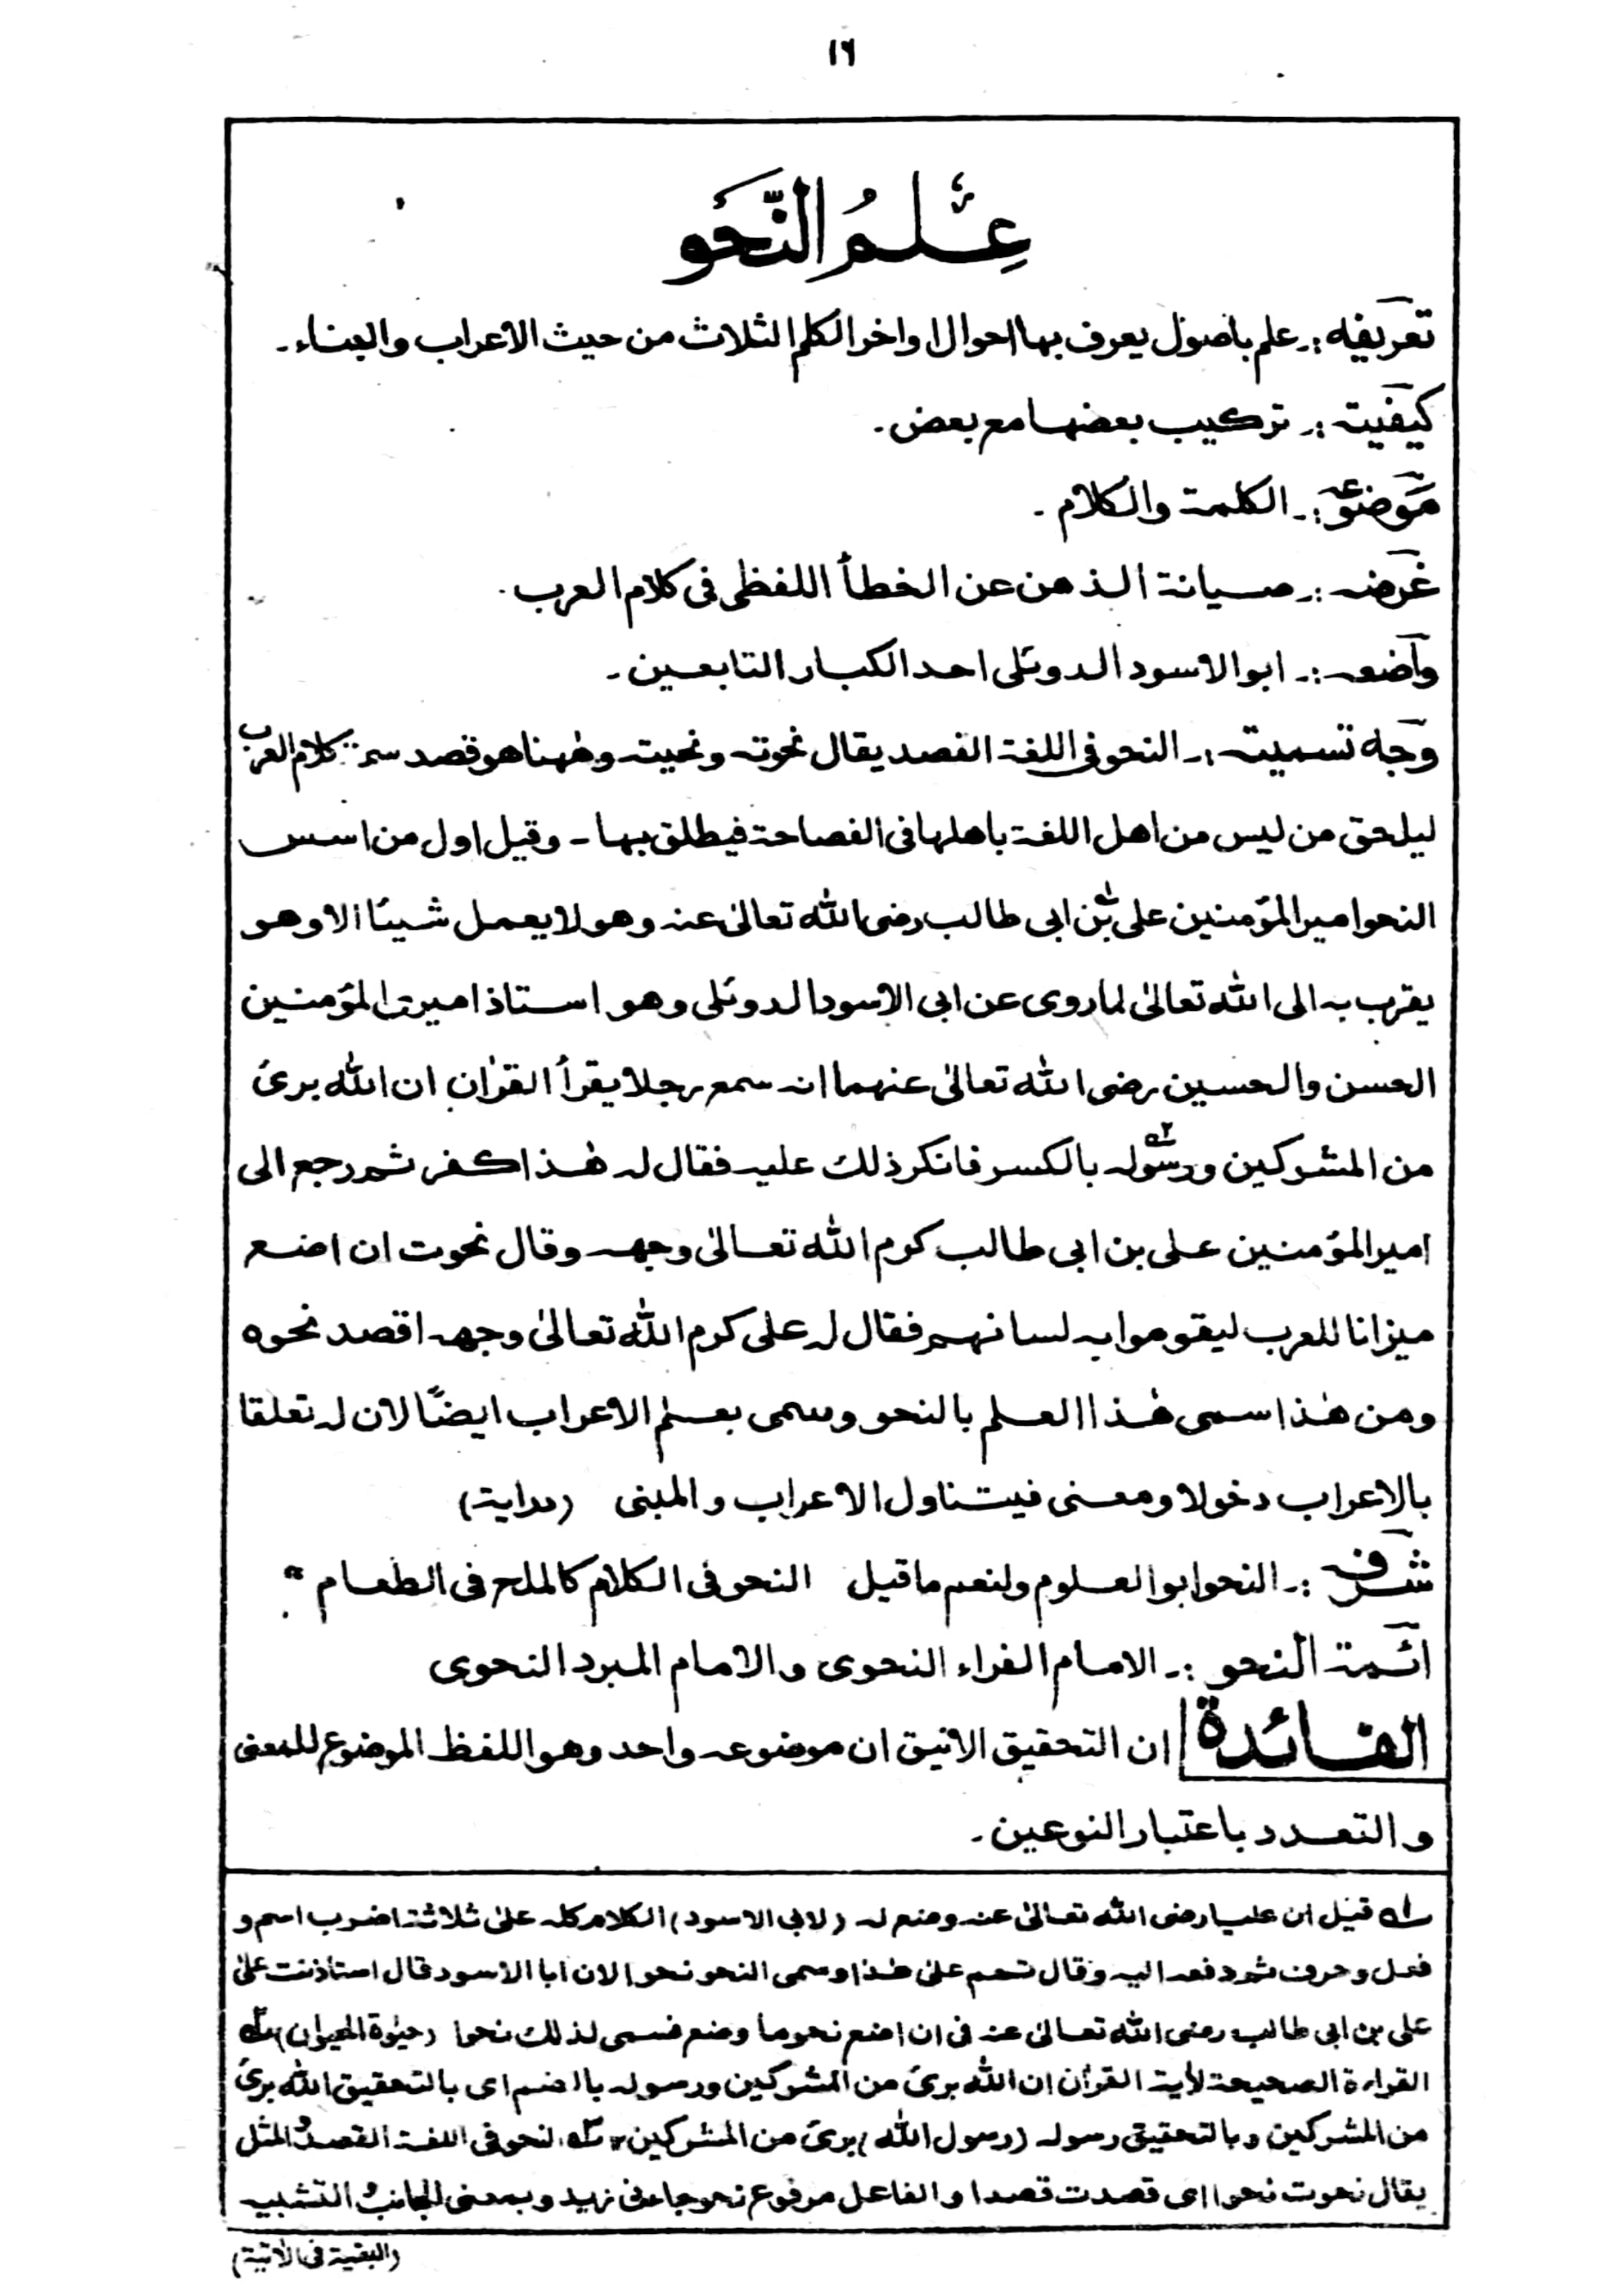 ١٦
عِلْمُ النَّحَو
تعريفه :۔ علم باصول يعرف بها احوال اواخر الكلم الثلاث من حيث الاعراب والبناء ۔
كيفيته :۔ تركيب بعضها مع بعض ۔
موضوعه :۔ الكلمة والكلام ۔
غرضه :۔ صيانة الذهن عن الخطأ اللفظى فى كلام العرب ۔
واضعه :۔ ابو الاسود الدوئلى احد الكبار التابعين ۔
وجه تسميته :۔ النحو فى اللغة القصد يقال نحوته ونحيته وهٰهنا هو قصد كلام العرب
ليلحق من ليس من اهل اللغة باهلها فى الفصاحة فيطلق بها ۔ وقيل اول من اسس
النحو امير المؤمنين على بن ابى طالب رضى الله تعالىٰ عنه وهو لا يعمل شيئا الا وهو
يقرب به الى الله تعالىٰ لما روى عن ابى الاسود الدوئلى وهو استاذ اميرى المؤمنين
الحسن والحسين رضى الله تعالىٰ عنهما انه سمع رجلا يقرأ القراٰن ان الله برئ
من المشركين ورسوله بالكسر فانكر ذلك عليه فقال له هٰذا كفر ثم رجع الى
امير المؤمنين على بن ابى طالب كرم الله تعالىٰ وجهه وقال نحوت ان اضع
ميزانا للعرب ليقوموا به لسانهم فقال له على كرم الله تعالىٰ وجهه اقصد نحوه
ومن هٰذا سمى هٰذا العلم بالنحو وسمى بعلم الاعراب ايضًا لان له تعلقا
بالاعراب دخولا ومعنى فيتناول الاعراب والمبنى (دراية)
شرفه :۔ النحو ابو العلوم ولنعم ما قيل النحو فى الكلام كالملح فى الطعام "
ائمة النحو :۔ الامام الفراء النحوى والامام المبرد النحوى
الفائدة ان التحقيق الانيق ان موضوعه واحد وهو اللفظ الموضوع للمعنى
والتعدد باعتبار النوعين ۔
لـه قيل ان عليا رضى الله تعالىٰ عنه وضع له (لابى الاسود) الكلام كله علىٰ ثلاثة اضرب اسم و
فعل وحرف ثم دفعه اليه وقال تمم علىٰ هٰذا وسمى النحو نحوا لان ابا الاسود قال استاذنت علىٰ
على بن ابى طالب رضى الله تعالىٰ عنه فى ان اضع نحو ما وضع فسمى لذلك نحوا (حيٰوة الحيوان) ٢ـه
القراءة الصحيحة لأية القراٰن ان الله برئ من المشركين ورسوله بالضم اى بالتحقيق الله برئ
من المشركين وبالتحقيق رسوله (رسول الله) برئ من المشركين ٣ـه النحو فى اللغة القصد والمثل
يقال نحوت نحوا اى قصدت قصدا والفاعل مرفوع نحو جاءنى زيد وبمعنى الجانب والتشبيه
(البقية فى الاٰتية)